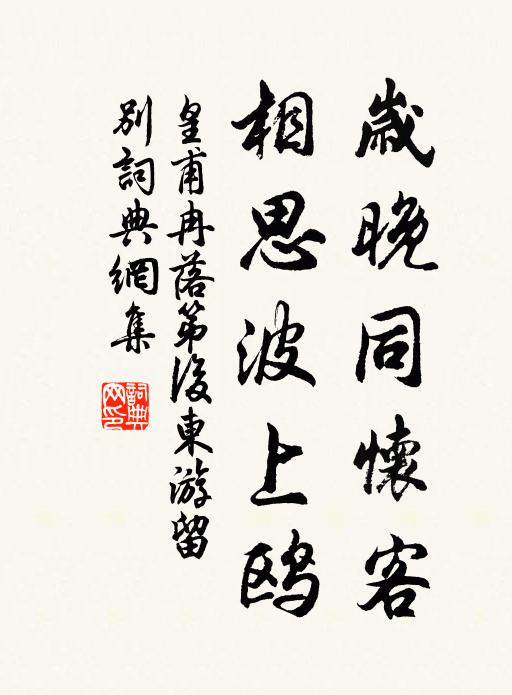 歲晚同懷客
相思波上鸥
皇甫冉落第後東游留
別詞典網集
詞典網印